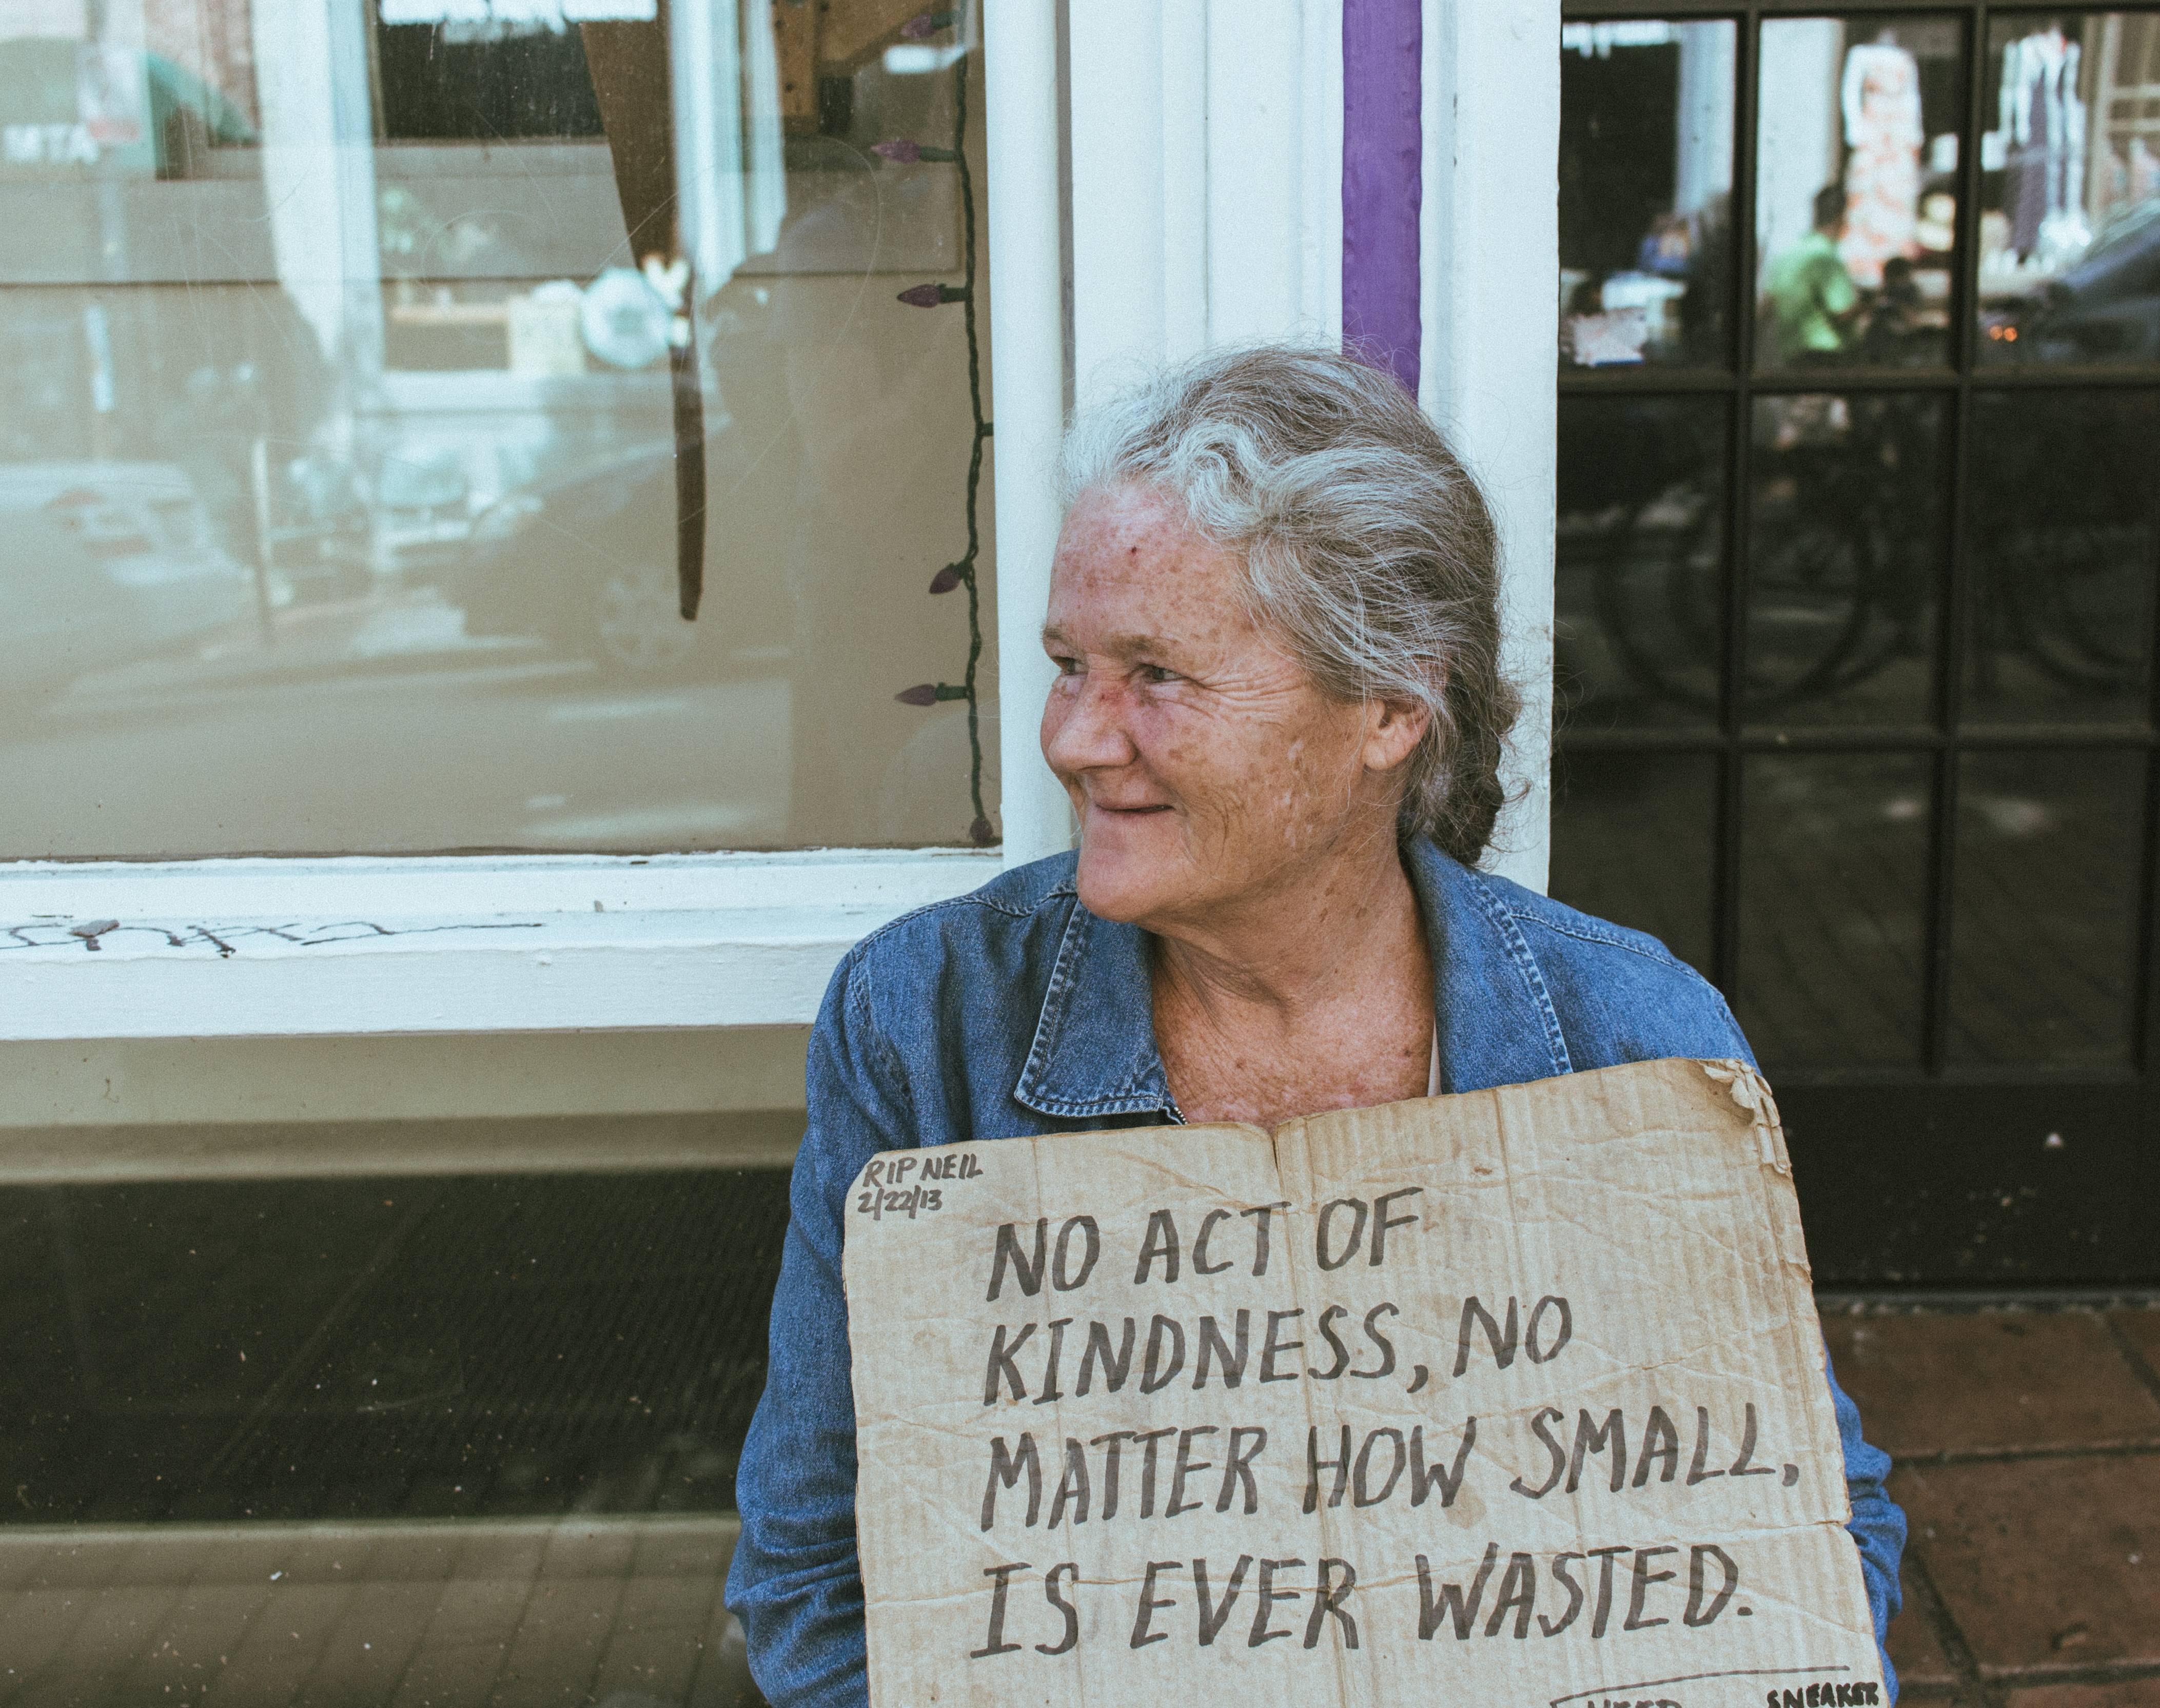 RIP NEIL
2/22/13
NO ACT OF
KINDNESS, NO
MATTER HOW SMALL,
IS EVER WASTED.
NEED SNEAKER